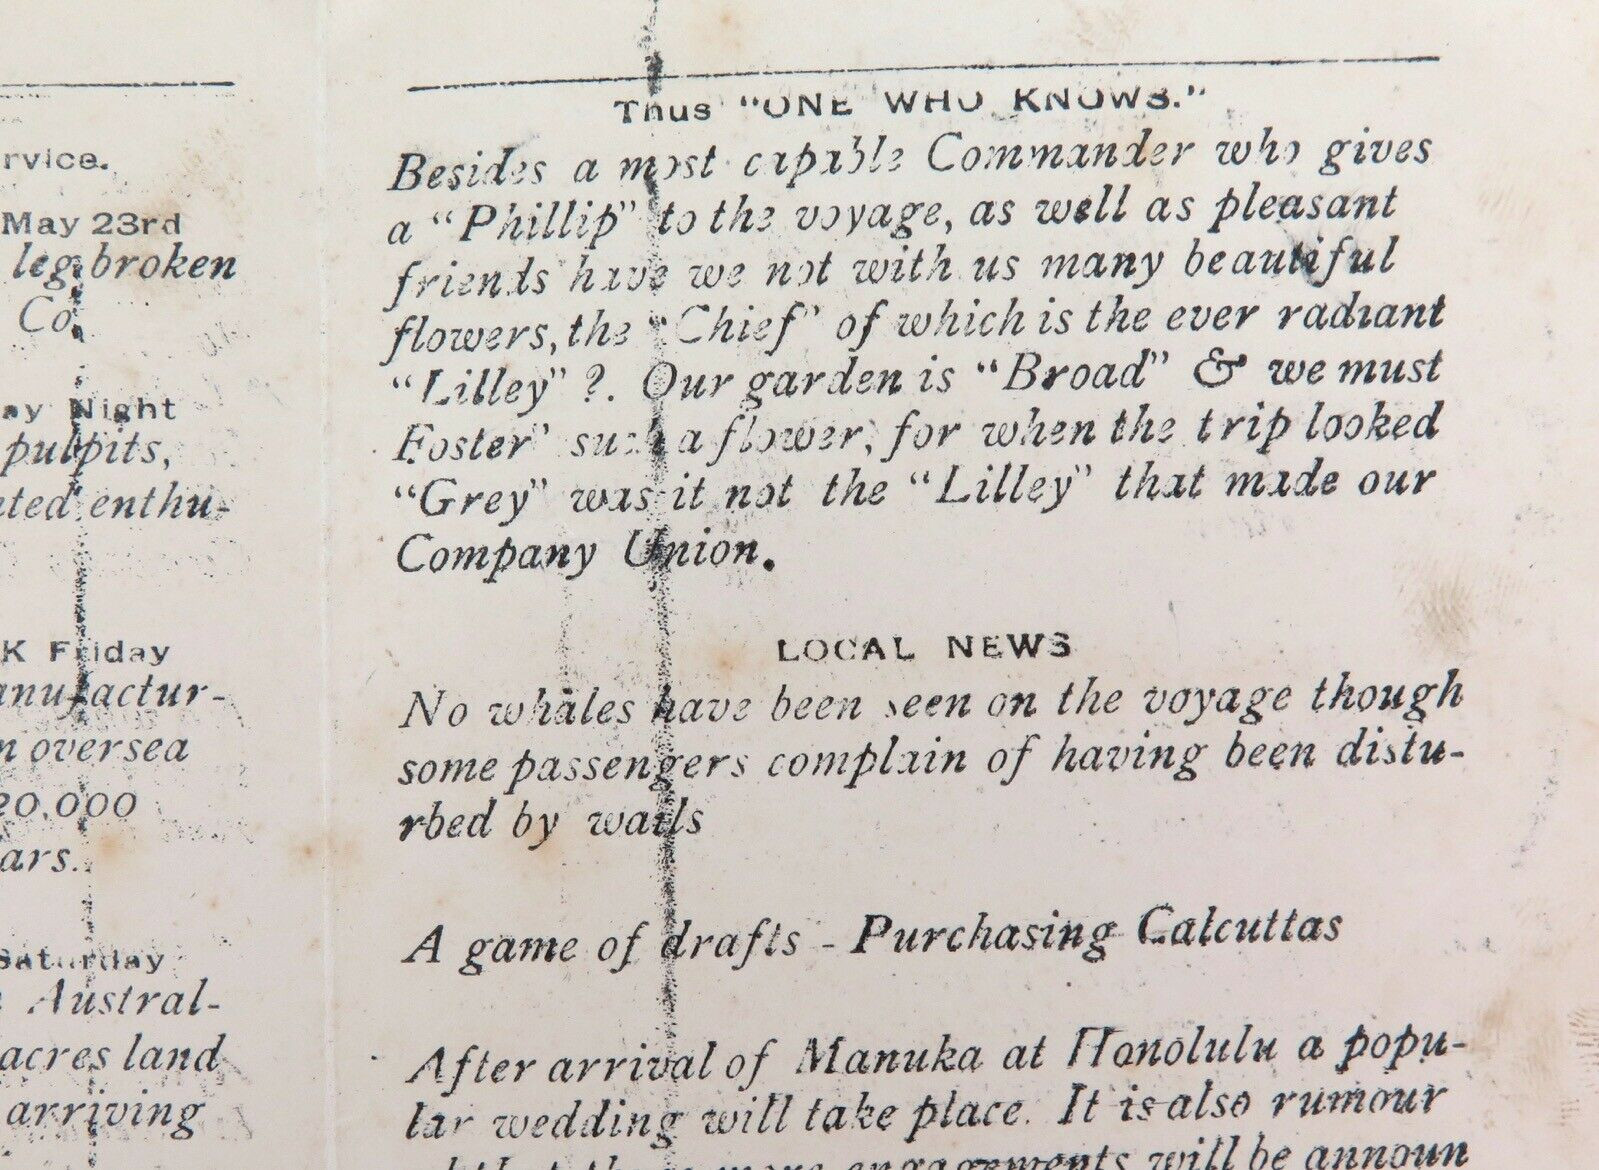 rvice.
May 23rd
leg broken
Co.
ay Night
pulpits,
ted enthu-
K Friday
anufactur-
n oversea
20,000
ars.
Saturday
Austral-
acres land
arriving
Thus "ONE WHO KNOWS."
Besides a most capable Commander who gives
a "Phillip" to the voyage, as well as pleasant
friends have we not with us many beautiful
flowers, the "Chief" of which is the ever radiant
"Lilley" ?. Our garden is "Broad" & we must
Foster" such a flower, for when the trip looked
"Grey" was it not the "Lilley" that made our
Company Union.
LOCAL NEWS
No whales have been seen on the voyage though
some passengers complain of having been distu-
rbed by wails
A game of drafts - Purchasing Calcuttas
After arrival of Manuka at Honolulu a popu-
lar wedding will take place. It is also rumour
that more engagements will be announ